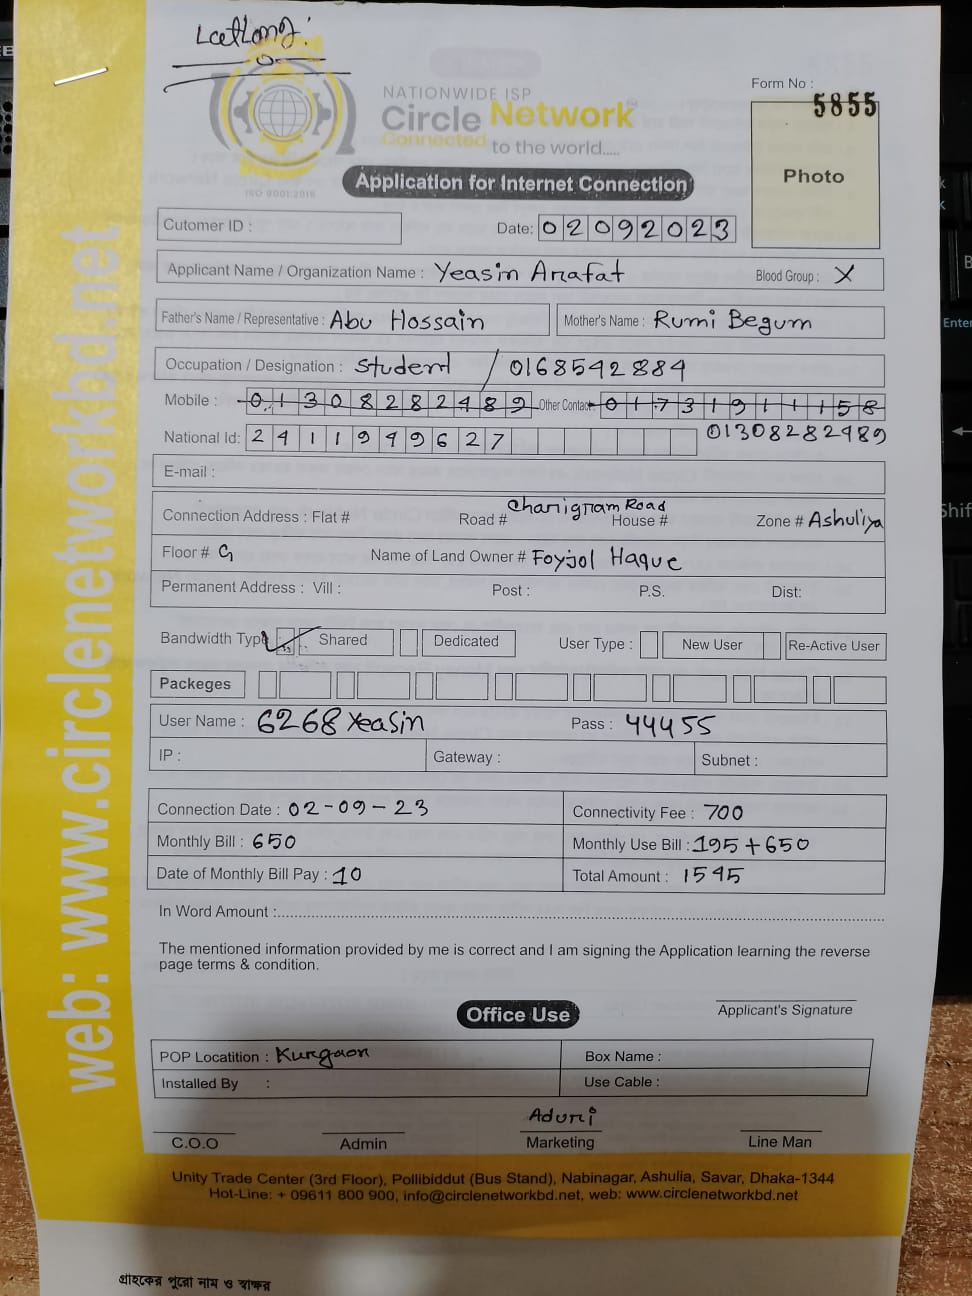 NATIONWIDE ISP
Circle Network
Connected to the world.....
ISO 9001:2015
Form No :
5855
Photo
Application for Internet Connection
Cutomer ID :
Date: 02092023
Applicant Name / Organization Name : Yeasin Arafat Blood Group : X
Father's Name / Representative : Abu Hossain Mother's Name : Rumi Begum
Occupation / Designation : Student / 0168542884
Mobile : 01308282489 Other Contact 01731911158
National Id: 2411949627 01308282489
E-mail :
Connection Address : Flat # Road # Charigram Road House # Zone # Ashuliya
Floor # G Name of Land Owner # Foyjol Haque
Permanent Address : Vill : Post : P.S. Dist:
Bandwidth Type Shared Dedicated User Type : New User Re-Active User
Packeges
User Name : 6268Yeasin Pass : 44455
IP : Gateway : Subnet :
Connection Date : 02-09-23 Connectivity Fee : 700
Monthly Bill : 650 Monthly Use Bill : 195+650
Date of Monthly Bill Pay : 10 Total Amount : 1545
In Word Amount :
The mentioned information provided by me is correct and I am signing the Application learning the reverse
page terms & condition.
Applicant's Signature
Office Use
POP Locatition : Kurgaon Box Name :
Installed By : Use Cable :
Aduri
C.O.O Admin Marketing Line Man
Unity Trade Center (3rd Floor), Pollibiddut (Bus Stand), Nabinagar, Ashulia, Savar, Dhaka-1344
Hot-Line: + 09611 800 900, info@circlenetworkbd.net, web: www.circlenetworkbd.net
গ্রাহকের পুরো নাম ও স্বাক্ষর
web: www.circlenetworkbd.net
Enter
Shif